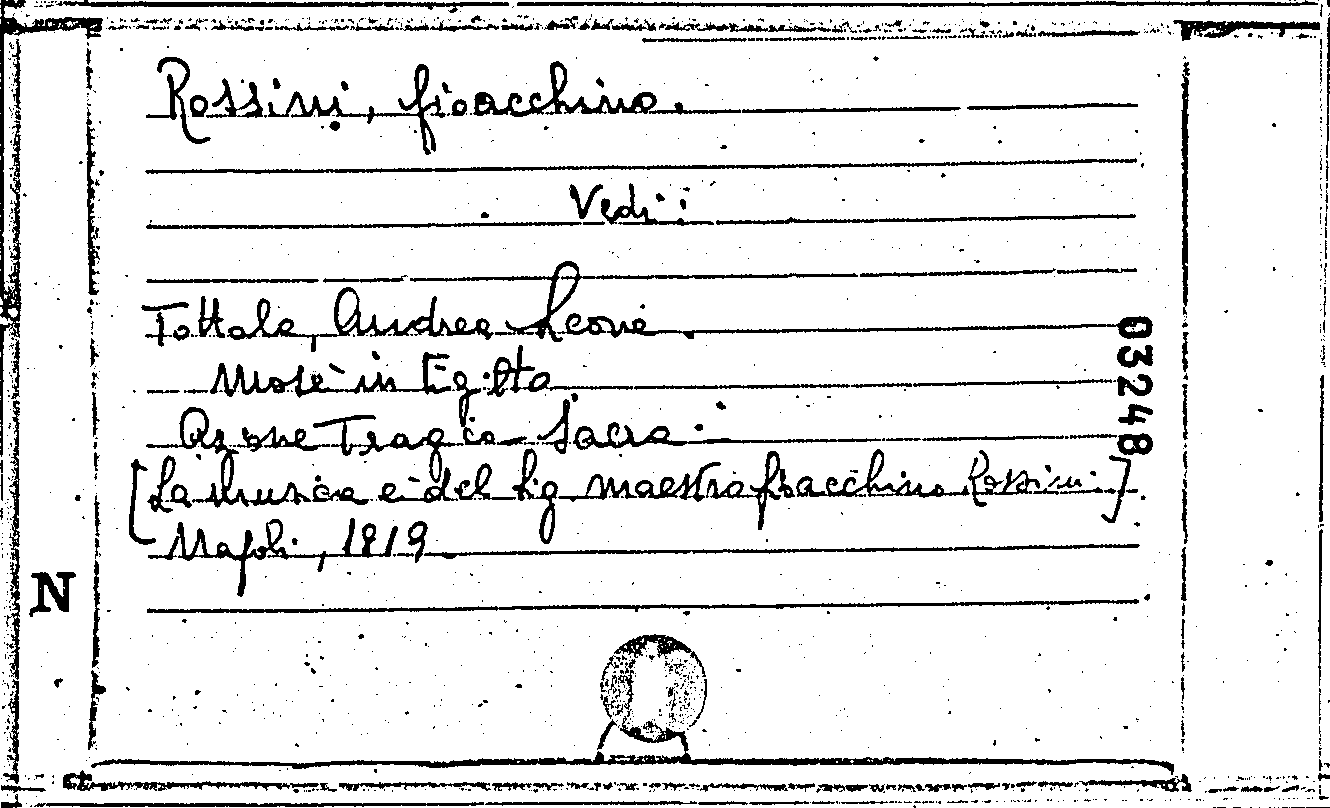 Rossini, Gioacchino.
Vedi:
Tottola, Andrea Leone.
Mosè in Egitto
Azione Tragico-Sacra.
[La Musica è del Sig. maestro Gioacchino Rossini]
Napoli, 1819.
03248
N